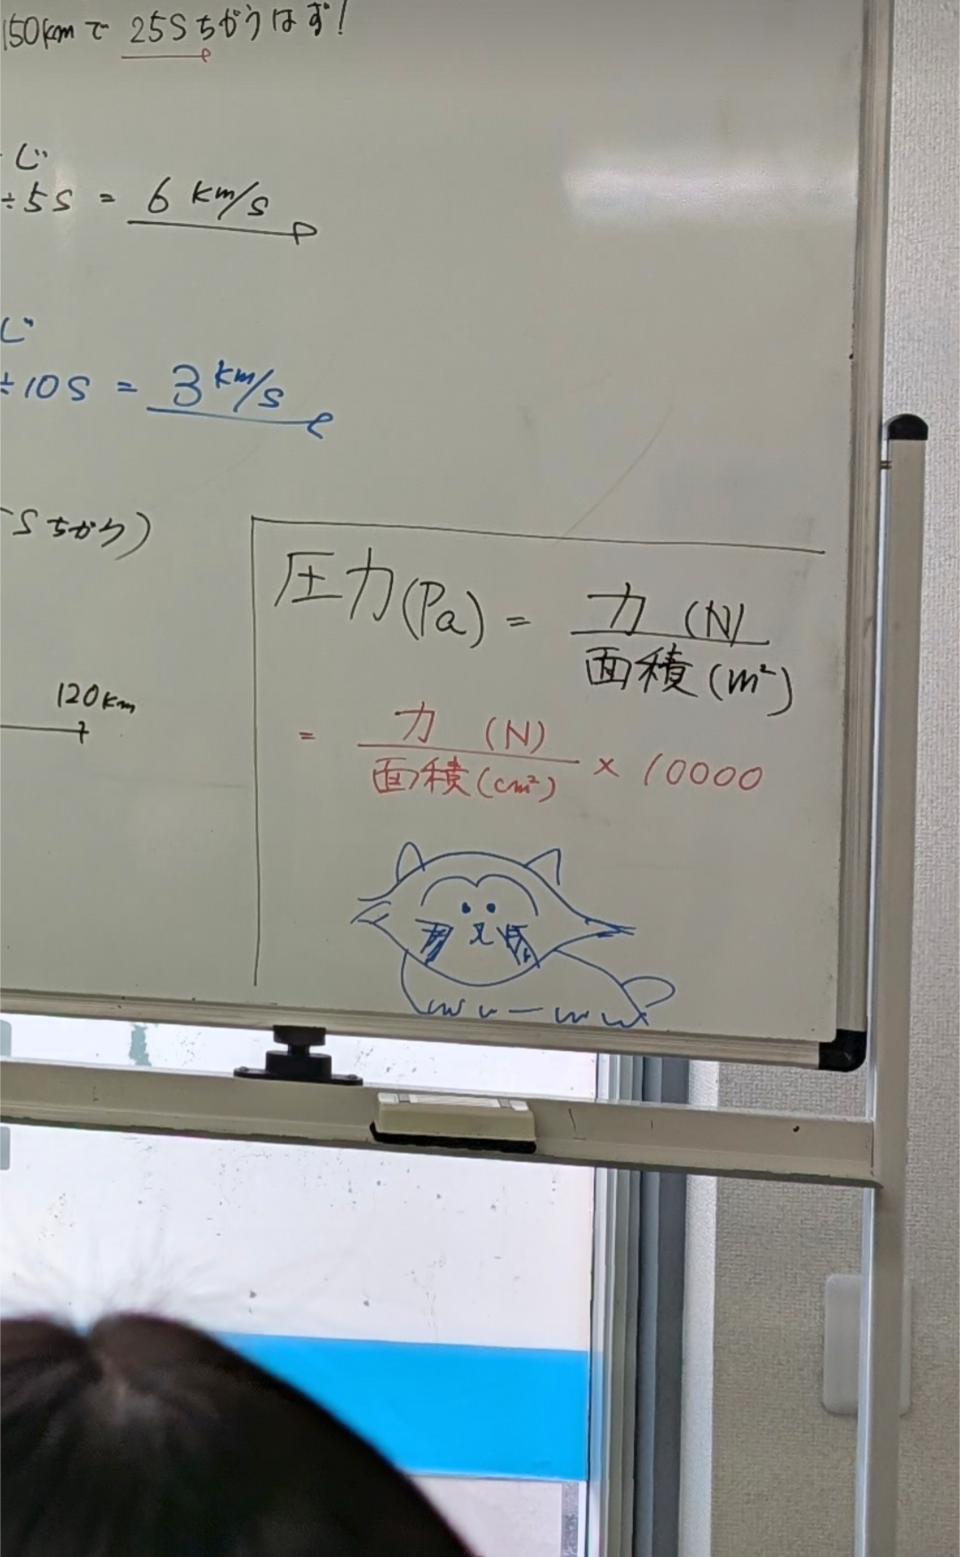 150kmで 25Sちがうはず!
じ
÷5S = 6 km/s
じ
÷10S = 3 km/s
Sちがう)
圧力(Pa) = 力 (N) / 面積(m²)
= 力 (N) / 面積(cm²) × 10000
120km